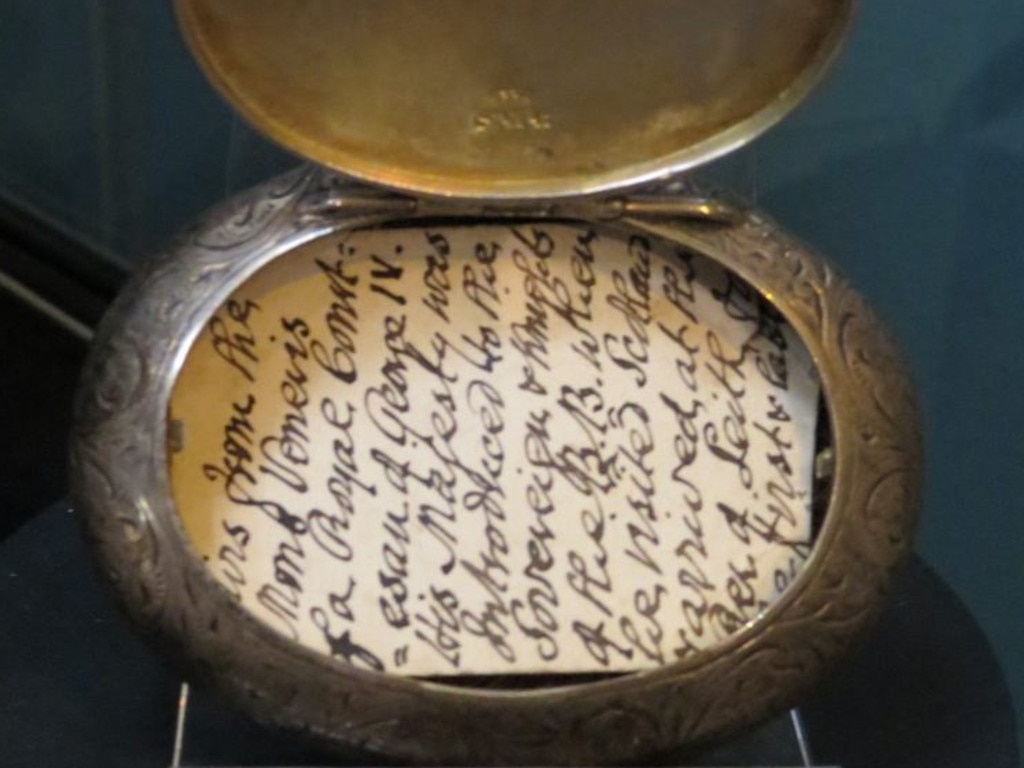 from the
Mons Voneris
of a Royal Comt:
= esan of George IV.
His Majesty was
Introduced to the
Sovereign & thimble
of the B.B. when
he visited Scotland
& arrived at the
Pier of Leith
first &